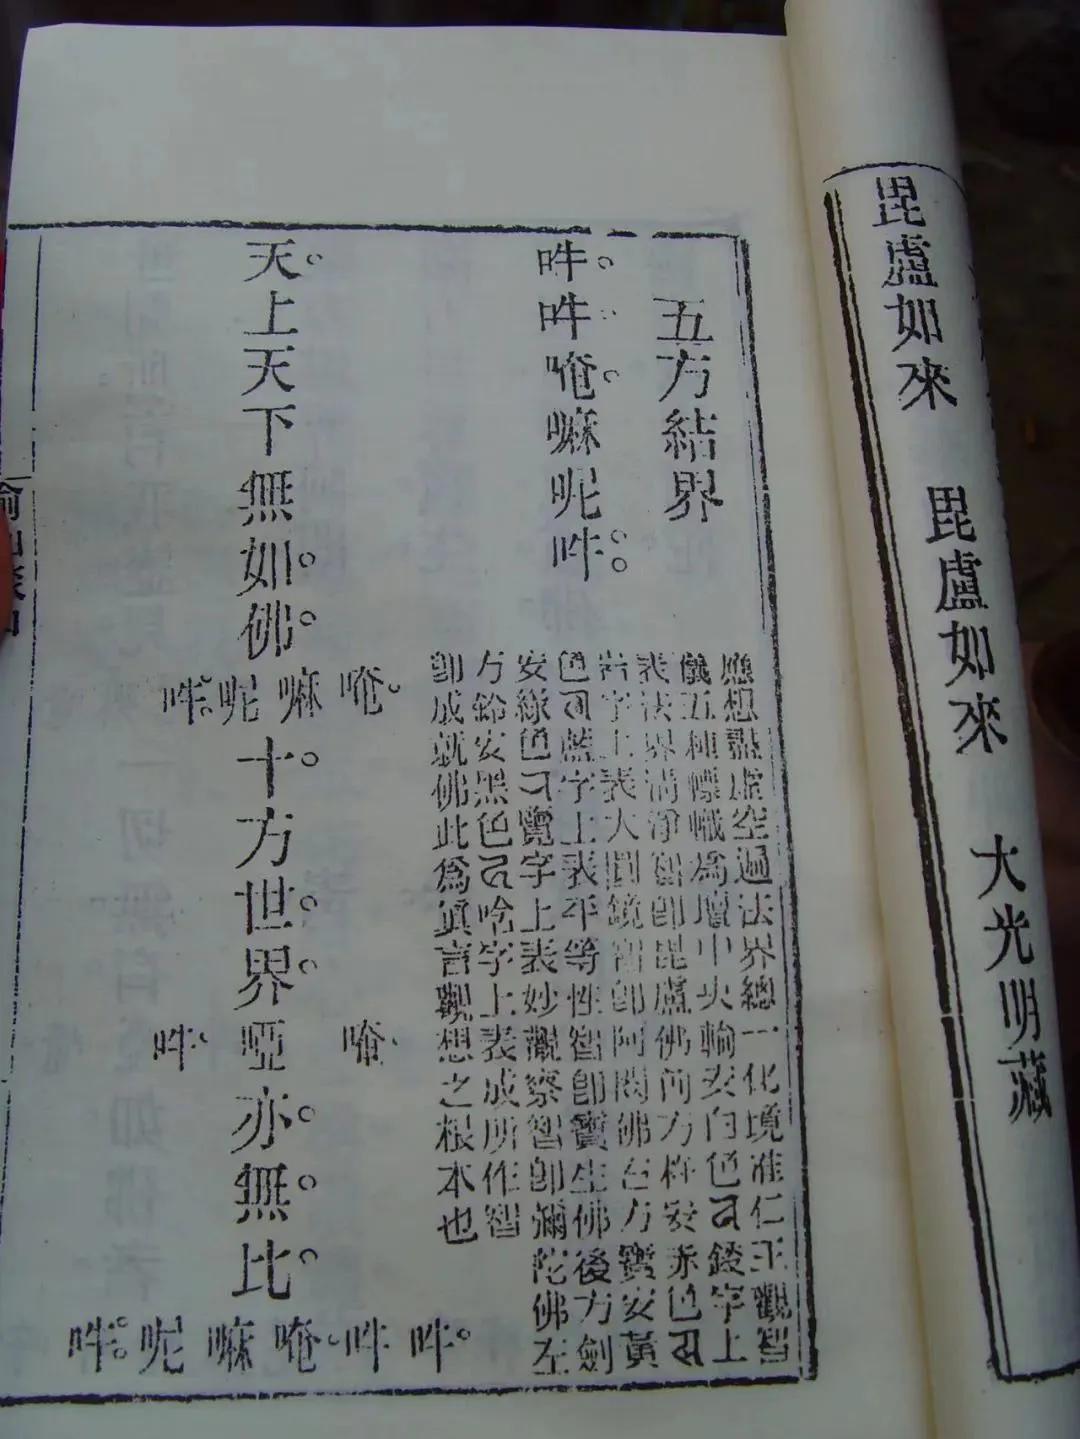 毘盧如來　毘盧如來　大光明藏
五方結界
吽吽唵嘛呢吽
應想盡虛空遍法界總一化境准仁王觀智
儀五種幖幟為壇中央輪安白色 鍐字上
表法界清淨智即毘盧佛前方杵安赤色
字上表大圓鏡智即阿閦佛右方寶安黃
色 藍字上表平等性智即寶生佛後方劍
安綠色 覽字上表妙觀察智即彌陀佛左
方鈴安黑色 唅字上表成所作智
即成就佛此為真言觀想之根本也
天上天下無如佛
唵嘛呢吽
十方世界啞亦無比
唵 吽
吽吽唵嘛呢吽